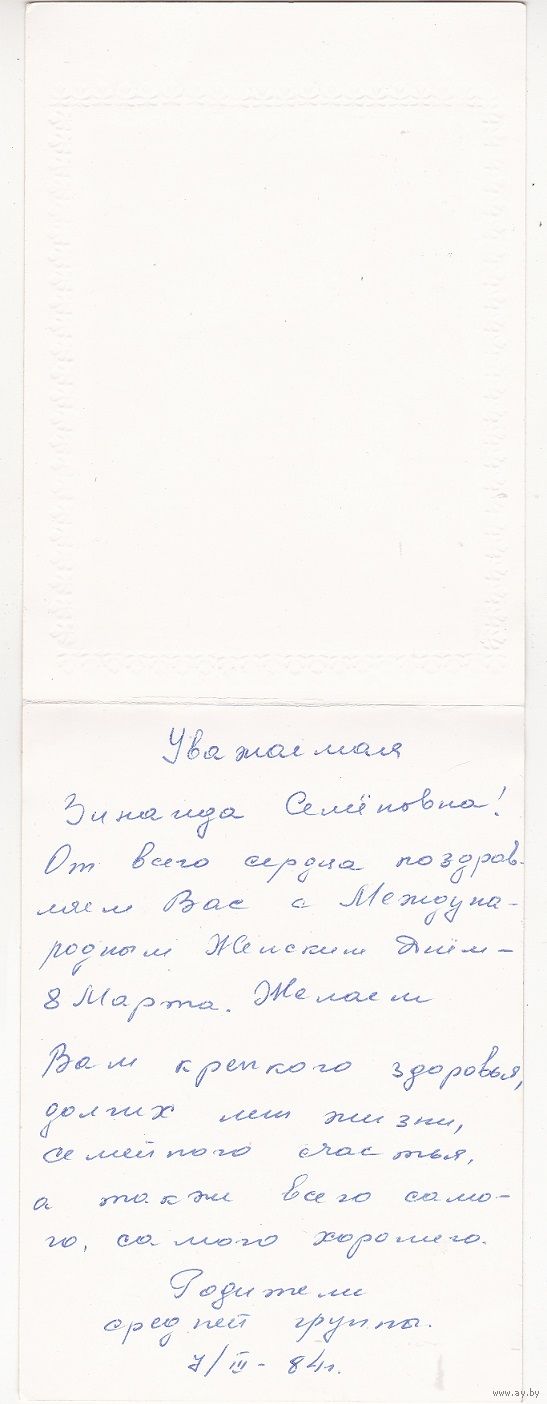 Уважаемая
Зинаида Семёновна!
От всего сердца поздрав-
ляем Вас с Междуна-
родным Женским Днём –
8 Марта. Желаем
Вам крепкого здоровья,
долгих лет жизни,
семейного счастья,
а также всего само-
го, самого хорошего.
Родители
средней группы.
7/III - 84г.
www.ay.by